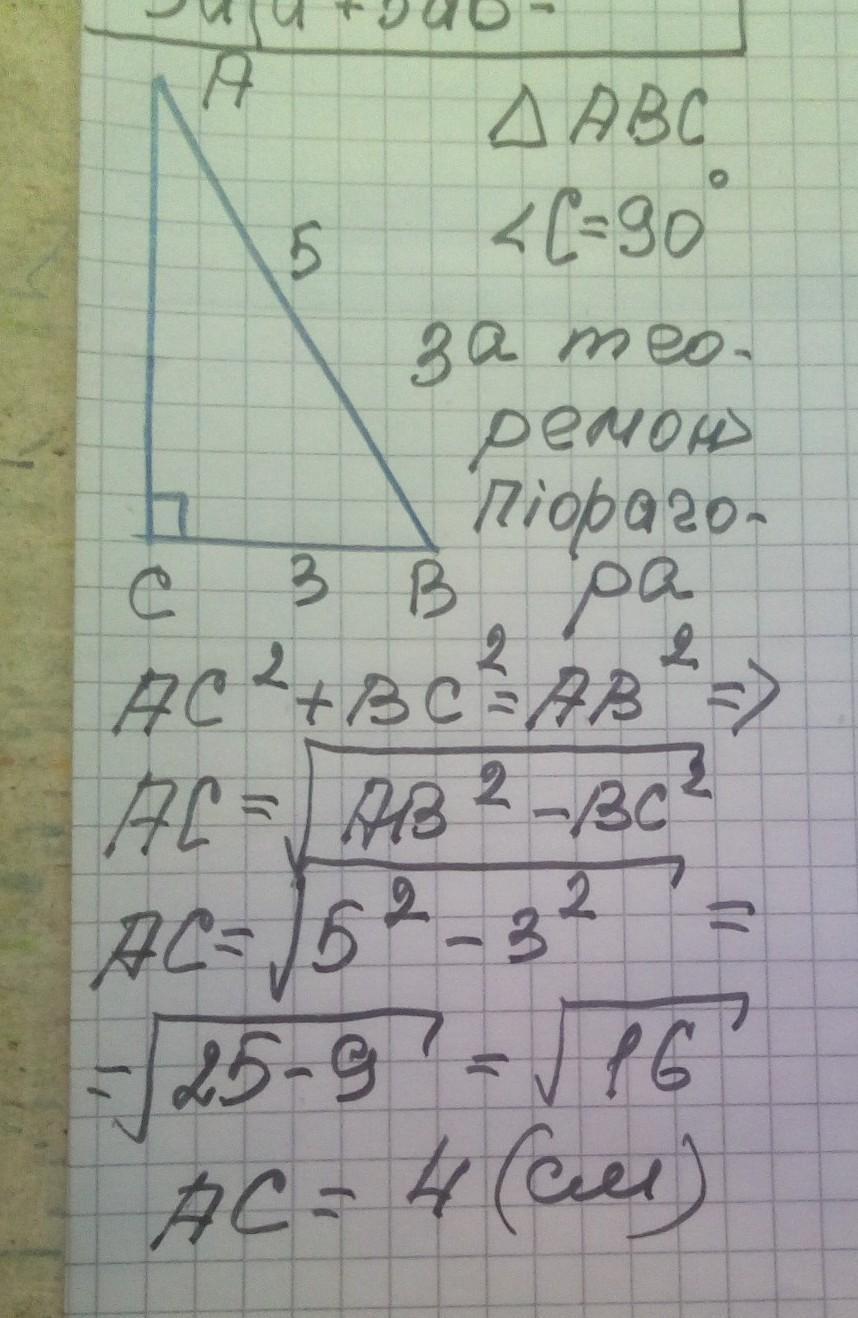 A
△ ABC
∠C=90°
5
за тео-
ремою
Піфраго-
ра
C 3 B
AC² + BC² = AB² =>
AC = √AB² - BC²
AC = √5² - 3² =
= √25 - 9 = √16
AC = 4 (см)